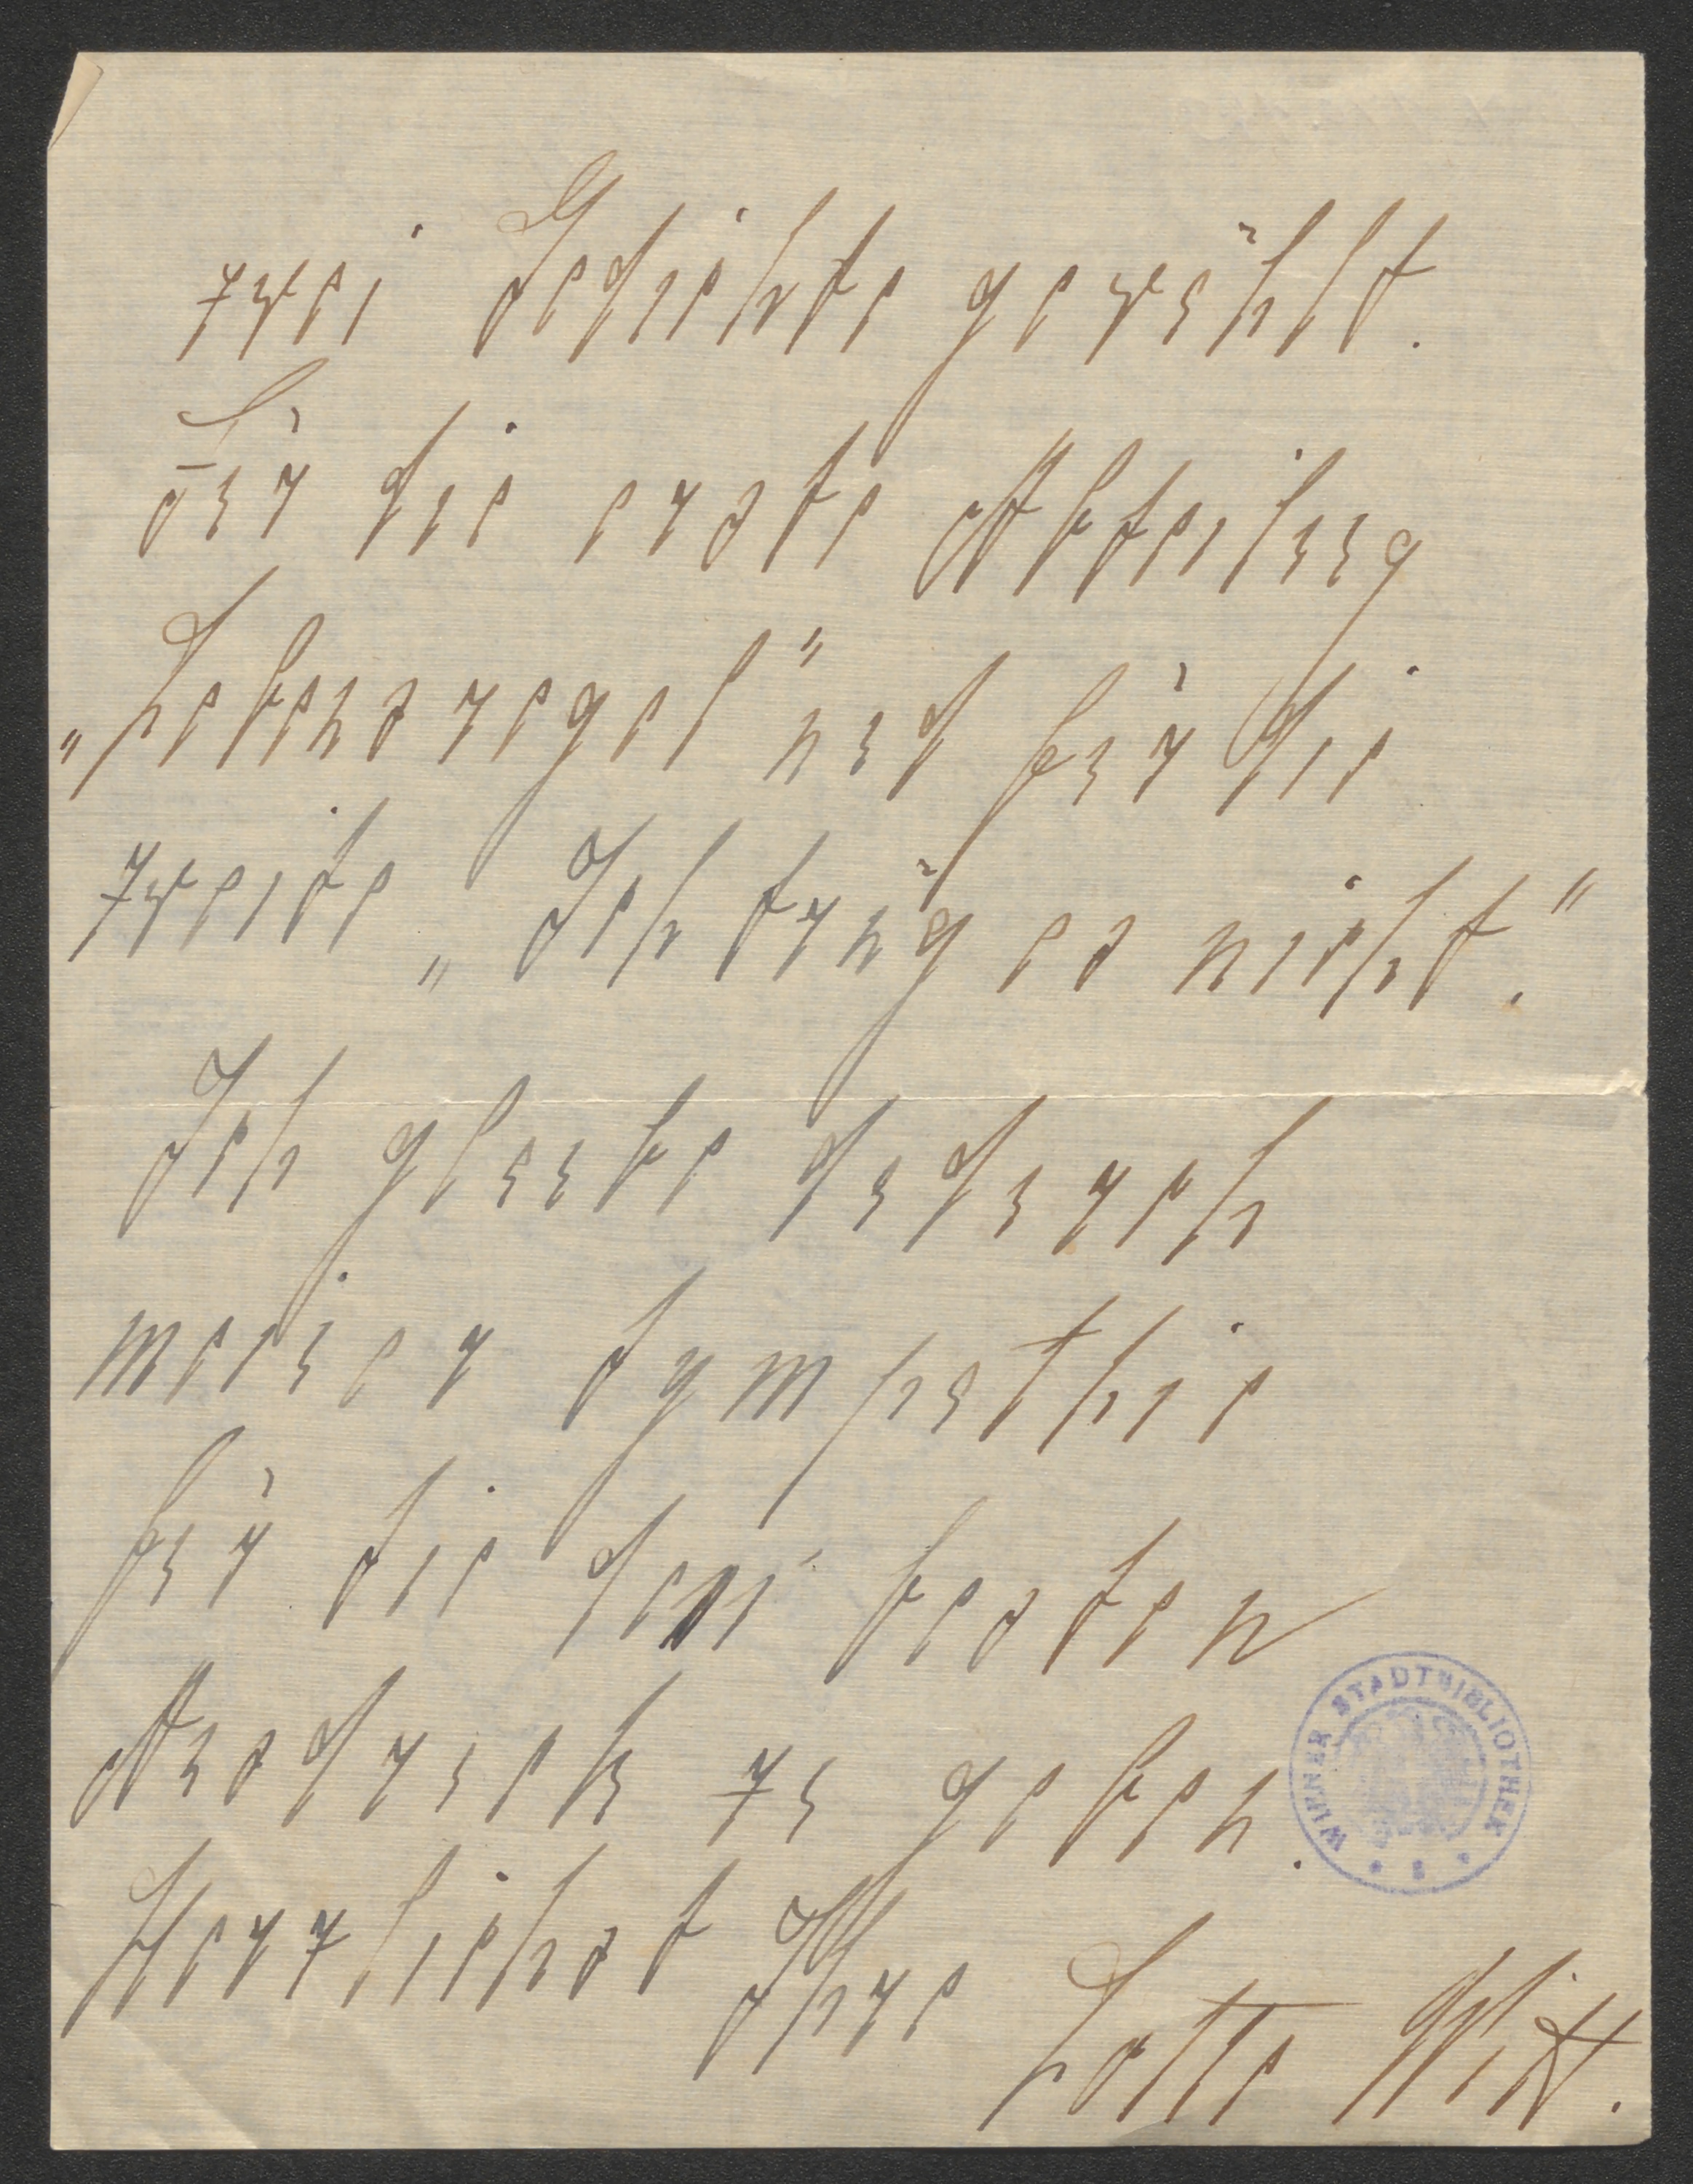 zwei Gedichte gewählt.
Für die erste Abteilung
„Lebensregel" und für die
zweite „Ich trüg es nicht."
Ich glaube dadurch
meiner Sympathie
für die zwei besten
Ausdruck zu geben.
Herzlichst Ihre Lotte Witt.
WIENER STADTBIBLIOTHEK